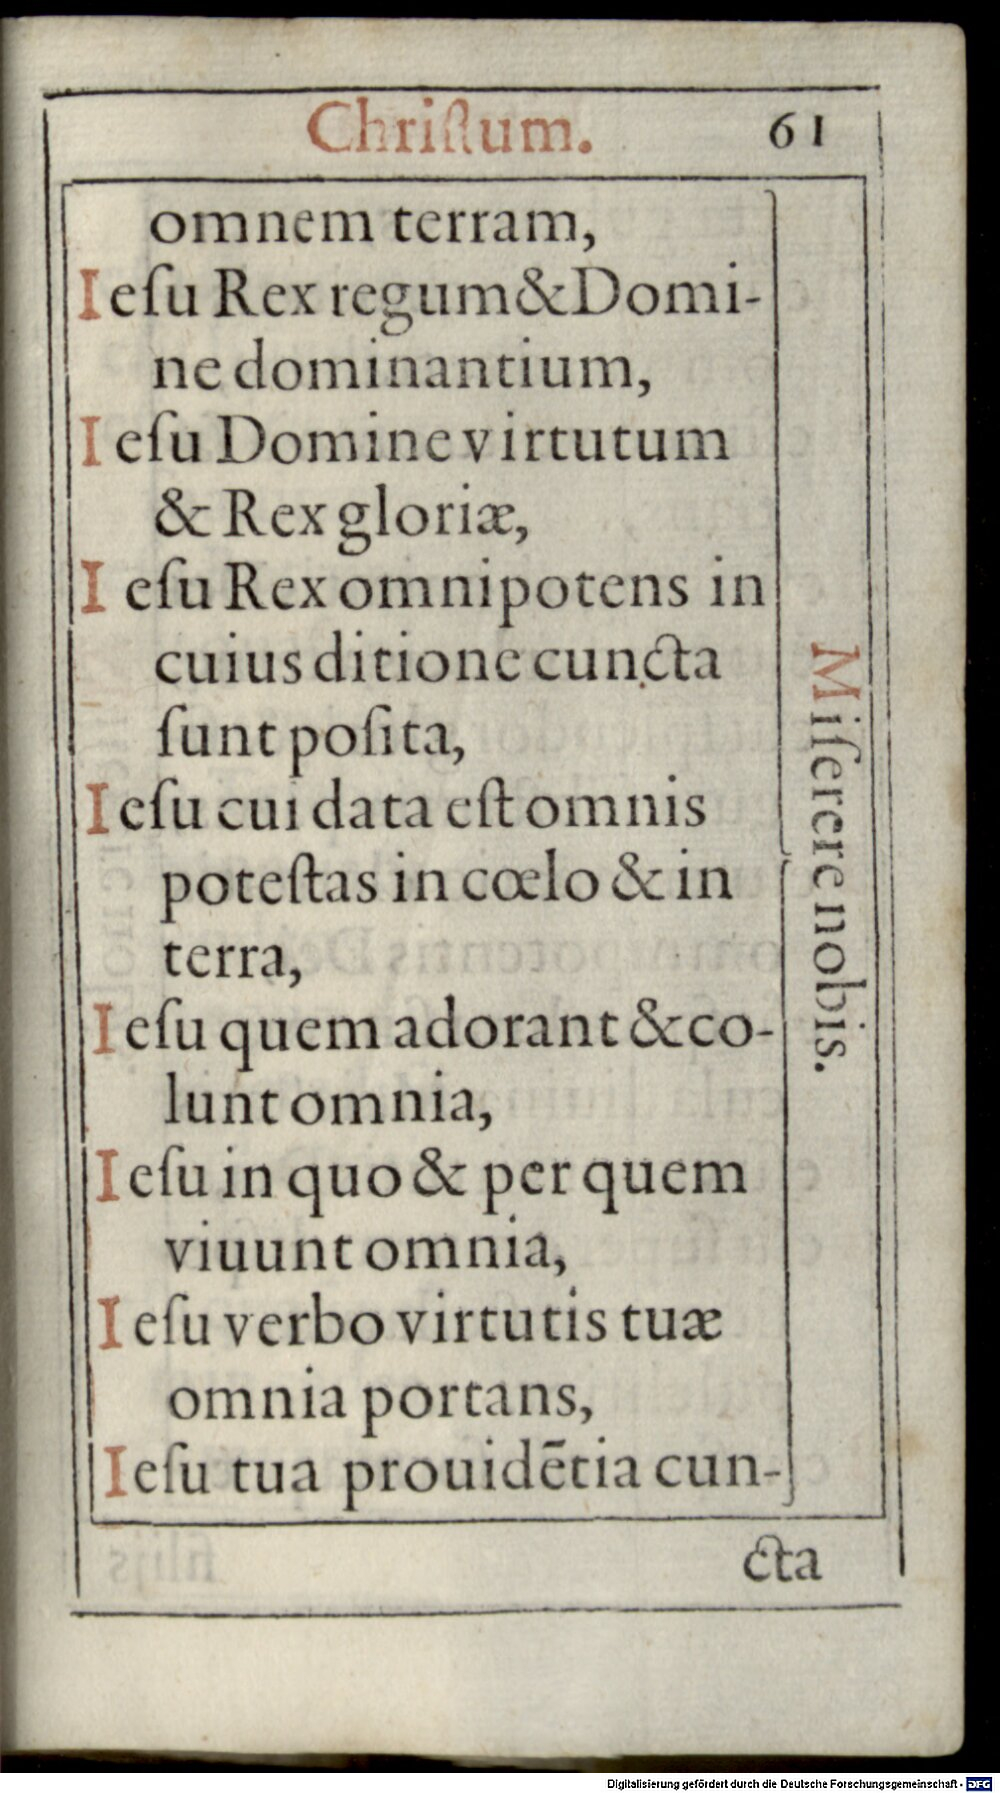 Chriſtum. 61
omnem terram,
Ieſu Rex regum & Domi-
ne dominantium,
Ieſu Domine virtutum
& Rex gloriæ,
Ieſu Rex omnipotens in
cuius ditione cuncta
ſunt poſita,
Ieſu cui data eſt omnis
poteſtas in cœlo & in
terra,
Ieſu quem adorant & co-
lunt omnia,
Ieſu in quo & per quem
viuunt omnia,
Ieſu verbo virtutis tuæ
omnia portans,
Ieſu tua prouidētia cun-
Miſerere nobis.
cta
Digitalisierung gefördert durch die Deutsche Forschungsgemeinschaft - DFG